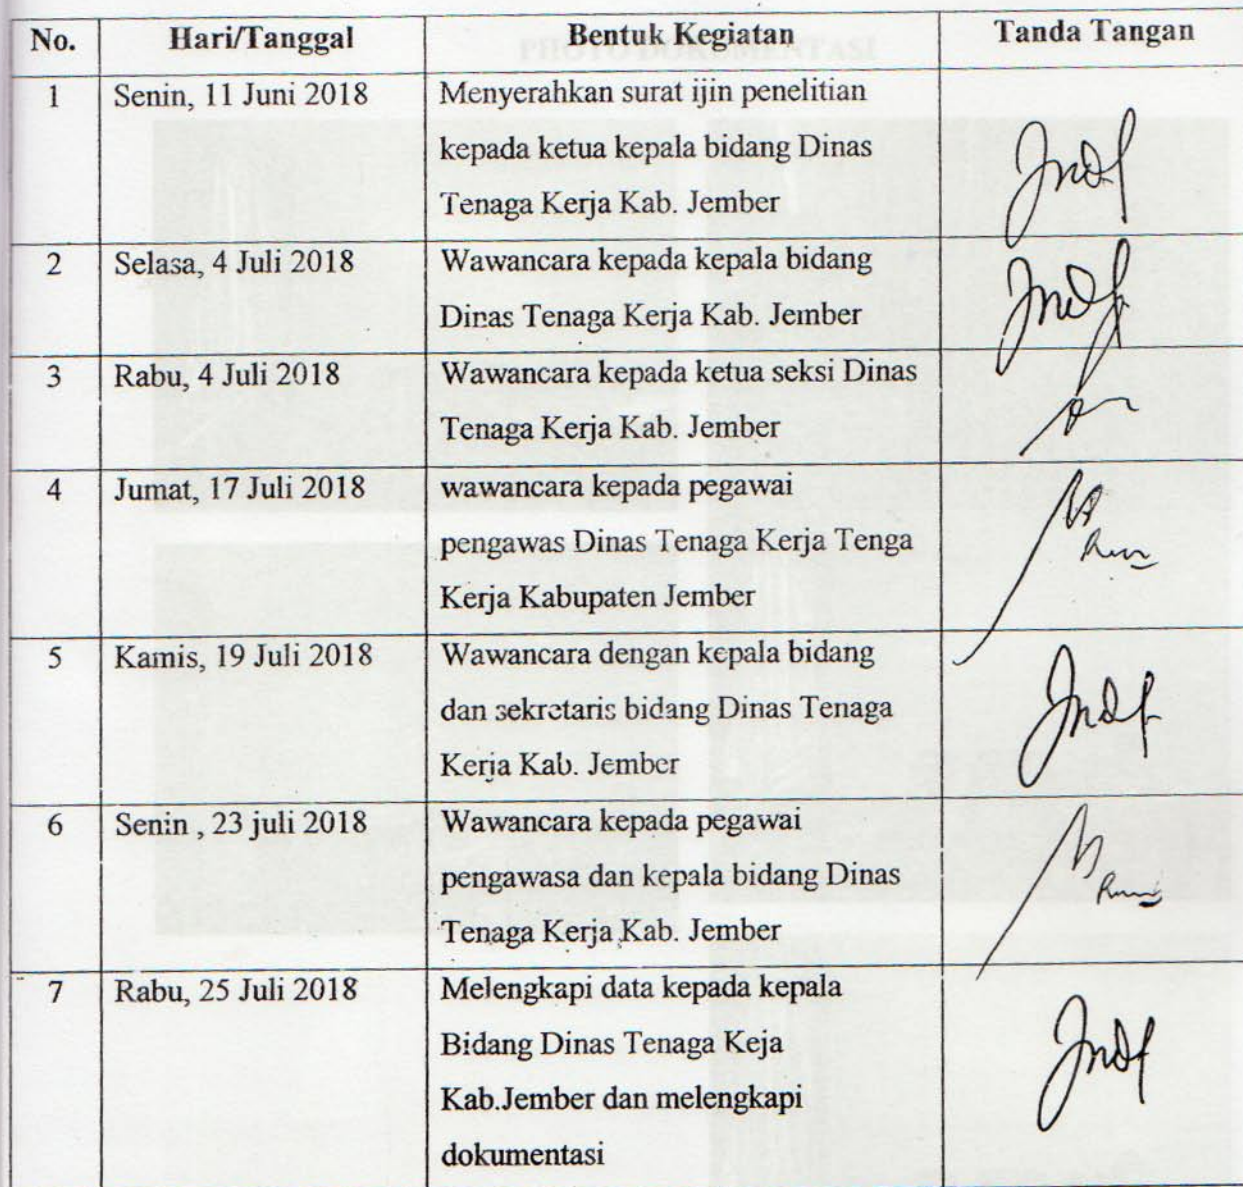 No. Hari/Tanggal Bentuk Kegiatan Tanda Tangan
1 Senin, 11 Juni 2018 Menyerahkan surat ijin penelitian
kepada ketua kepala bidang Dinas
Tenaga Kerja Kab. Jember
2 Selasa, 4 Juli 2018 Wawancara kepada kepala bidang
Dinas Tenaga Kerja Kab. Jember
3 Rabu, 4 Juli 2018 Wawancara kepada ketua seksi Dinas
Tenaga Kerja Kab. Jember
4 Jumat, 17 Juli 2018 wawancara kepada pegawai
pengawas Dinas Tenaga Kerja Tenga
Kerja Kabupaten Jember
5 Kamis, 19 Juli 2018 Wawancara dengan kepala bidang
dan sekretaris bidang Dinas Tenaga
Kerja Kab. Jember
6 Senin , 23 juli 2018 Wawancara kepada pegawai
pengawasa dan kepala bidang Dinas
Tenaga Kerja Kab. Jember
7 Rabu, 25 Juli 2018 Melengkapi data kepada kepala
Bidang Dinas Tenaga Keja
Kab.Jember dan melengkapi
dokumentasi